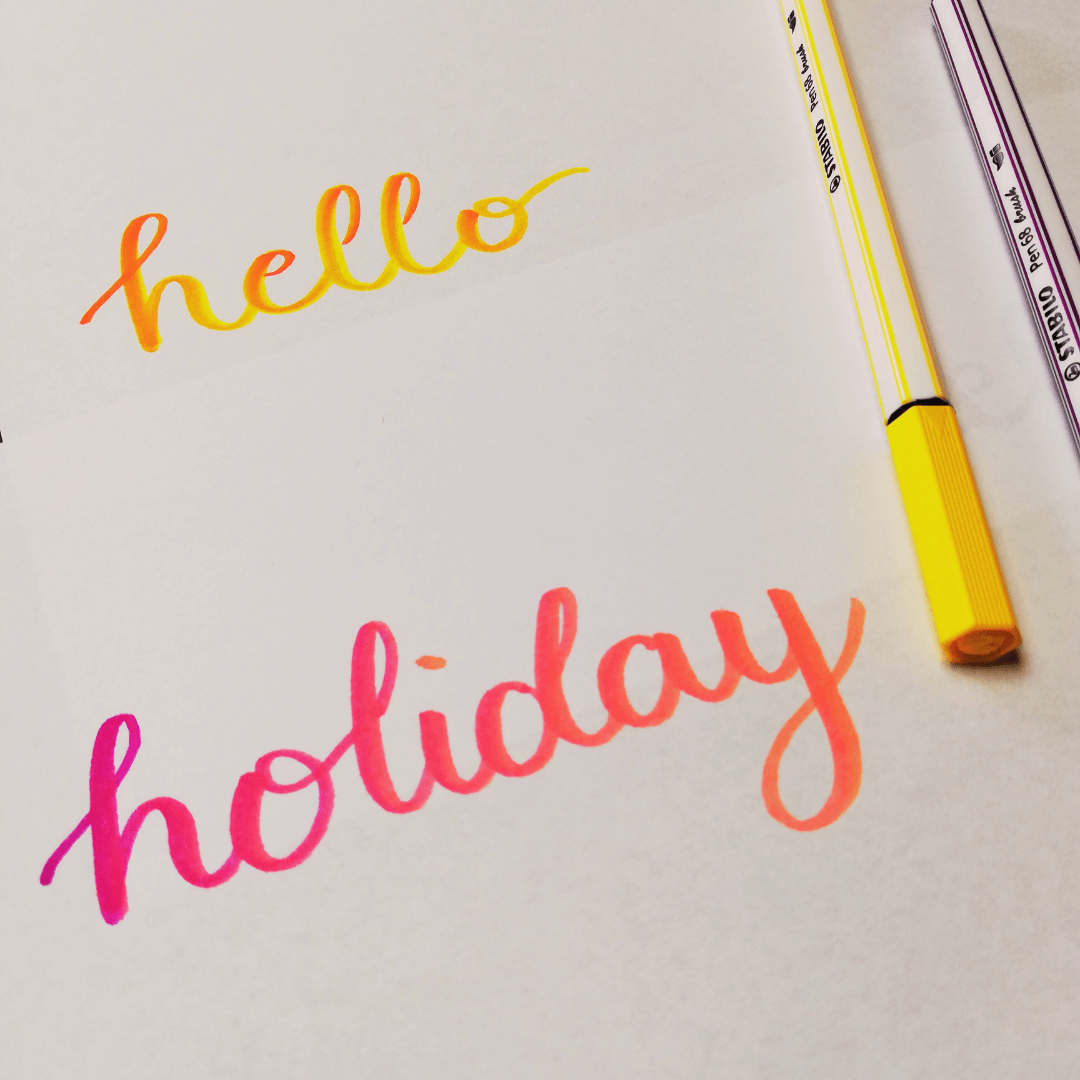 hello
holiday
STABILO Pen 68 brush
STABILO Pen 68 brush